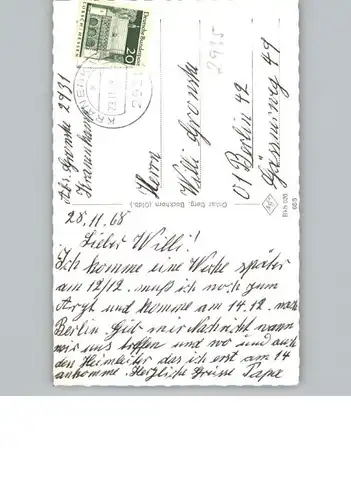 28.11.68
Lieber Willi!
Ich komme eine Woche später
am 12/12. muß ich noch zum
Arzt und komme am 14.12. nach
Berlin Gib mir Nachricht wann
wir uns treffen und wo und auch
den Heimleiter das ich erst am 14
ankomme. Herzliche Grüsse Papa
Abs. Gronska 2931
Herrn
Willi Gronska
01 Berlin 42
2915
Oskar Berg, Bockhorn (Oldb.)
Deutsche Bundespost
20